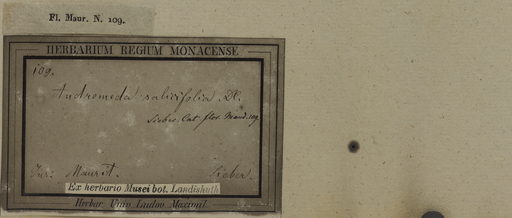 Fl. Maur. N. 109.
HERBARIUM REGIUM MONACENSE
109.
Andromeda salicifolia
Sieber. Cat. flor. Maur. 109
Maurit. Sieber.
Ex herbario Musei bot. Landishuth
Herbar. Univ. Ludov. Maximil.